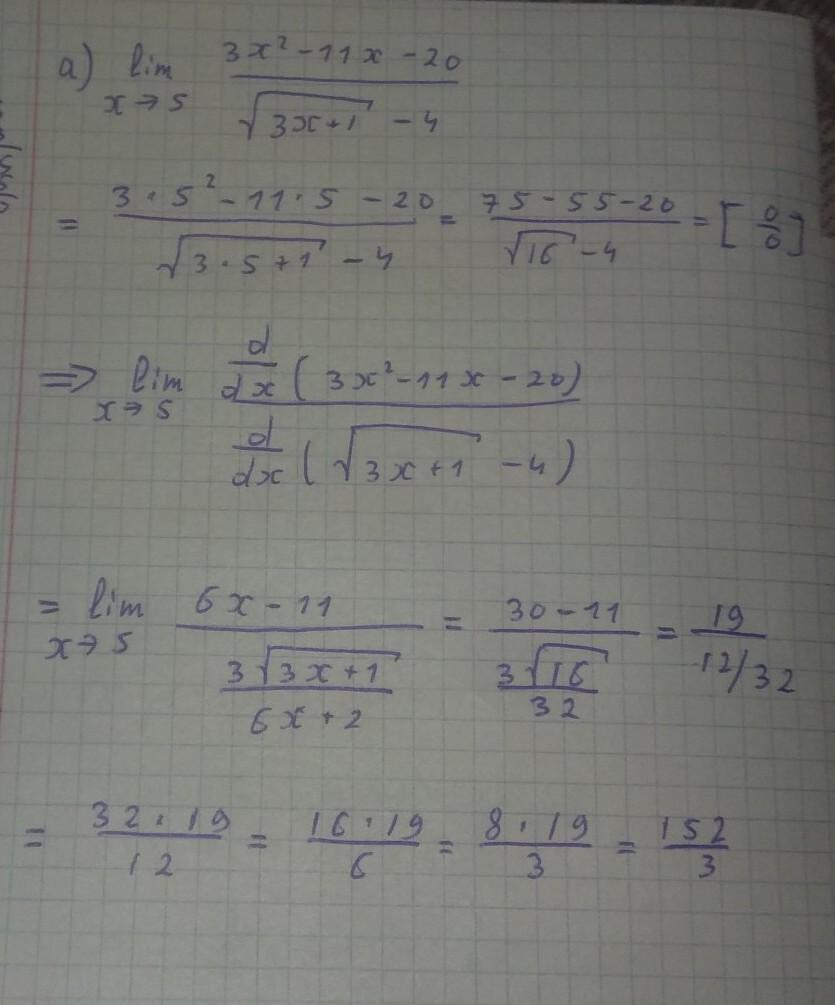 a) lim x→5 (3x² - 11x - 20) / (√(3x+1) - 4)
= (3·5² - 11·5 - 20) / (√(3·5+1) - 4) = (75 - 55 - 20) / (√16 - 4) = [0/0]
⇒ lim x→5 (d/dx (3x² - 11x - 20)) / (d/dx (√(3x+1) - 4))
= lim x→5 (6x - 11) / (3√(3x+1) / (6x+2)) = (30 - 11) / (3√16 / 32) = 19 / (12/32)
= (32·19)/12 = (16·19)/6 = (8·19)/3 = 152/3